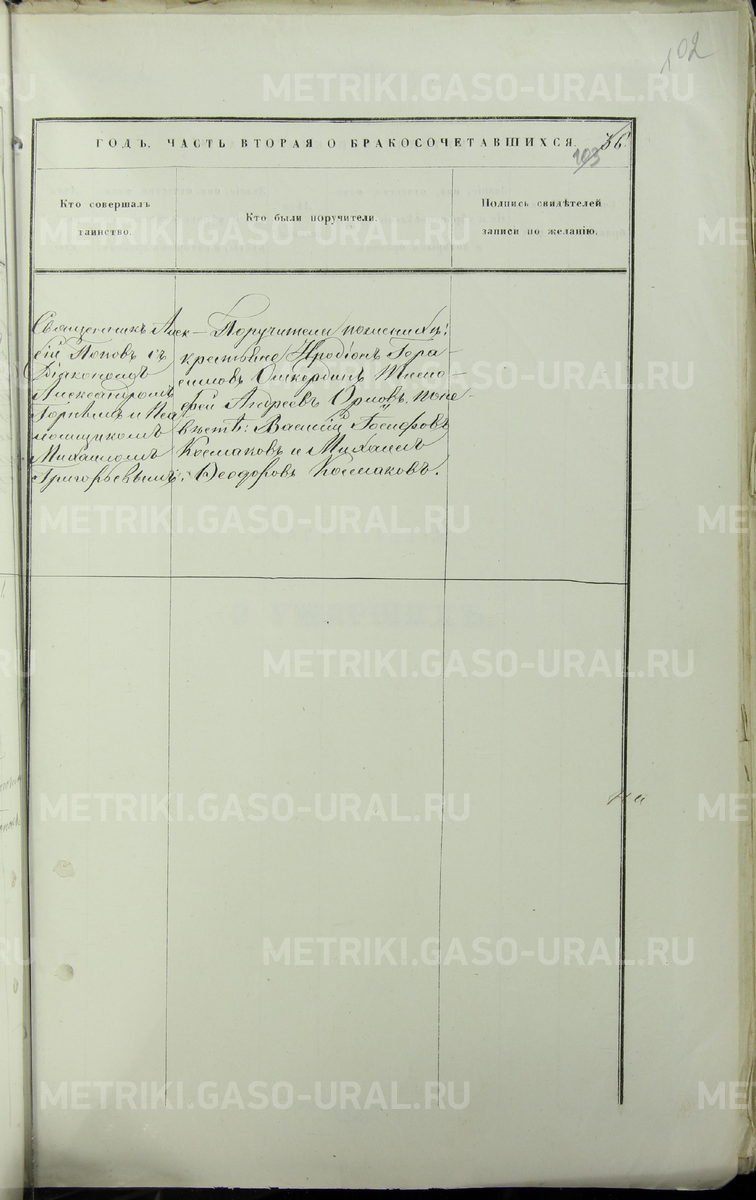 102
ГОДЪ. ЧАСТЬ ВТОРАЯ О БРАКОСОЧЕТАВШИХСЯ. 36
103
Кто совершалъ
таинство.
Кто были поручители.
Подпись свидѣтелей
записи по желанію.
Священникъ Алек-
сій Поповъ съ
Діакономъ
Александромъ
и По
мощникомъ
Михаиломъ
Григорьевымъ.
Поручители по женихѣ:
крестьяне Иродіонъ Гера-
симовъ Тимо-
фей Андреевъ Орловъ, по не-
вѣстѣ: Василій Іосифовъ
Космаковъ и Михаилъ
Ѳеодоровъ Космаковъ.
METRIKI.GASO-URAL.RU
METRIKI.GASO-URAL.RU
METRIKI.GASO-URAL.RU
METRIKI.GASO-URAL.RU
METRIKI.GASO-URAL.RU
METRIKI.GASO-URAL.RU
METRIKI.GASO-URAL.RU
METRIKI.GASO-URAL.RU